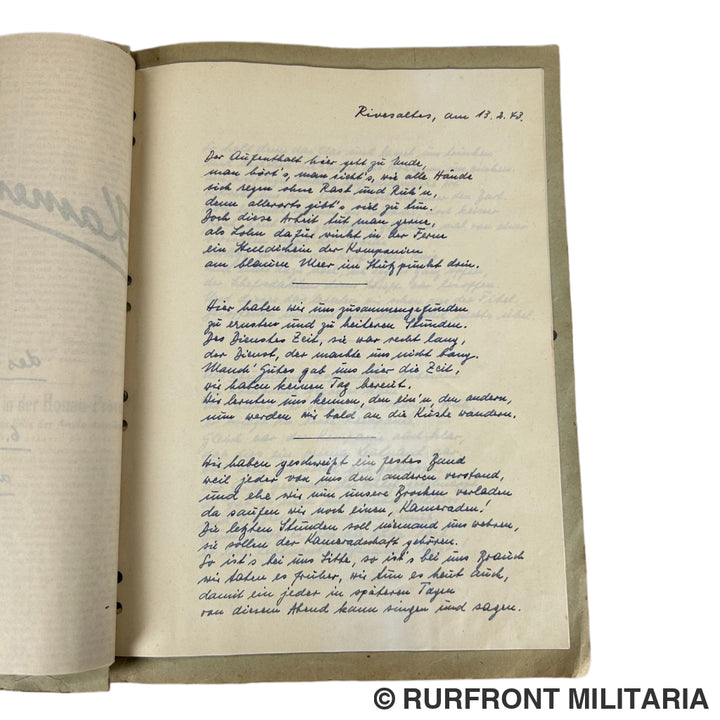 Kamer
des
in der Honna-Prov
6.
a
Rivesaltes, am 13.2.43.
Der Aufenthalt hier geht zu Ende,
man hört's, man sieht's, wie alle Hände
sich regen ohne Rast und Ruh'n,
denn allerorts gibt's viel zu tun.
Doch diese Arbeit tut man gerne,
als Lohn dafür winkt in der Ferne
ein Stelldichein der Kompanien
am blauen Meer im Stützpunkt drin.
Hier haben wir uns zusammengefunden
zu ernsten und zu heiteren Stunden.
Des Dienstes Zeit, sie war recht lang,
der Dienst, der machte uns nicht bang.
Manch' Gutes gab uns hier die Zeit,
wir haben keinen Tag bereut.
Wir lernten uns kennen, den ein'n, den andern,
nun werden wir bald an die Küste wandern.
Wir haben geschweißt ein festes Band
weil jeder von uns den anderen verstand,
und ehe wir nun unsere Brocken verladen
da saufen wir noch einen, Kameraden!
Die letzten Stunden soll niemand uns wehren,
sie sollen der Kameradschaft gehören.
So ist's bei uns Sitte, so ist's bei uns Brauch
wir taten es früher, wir tun es heut auch,
damit ein jeder in späteren Tagen
von diesem Abend kann singen und sagen.
© RURFRONT MILITARIA